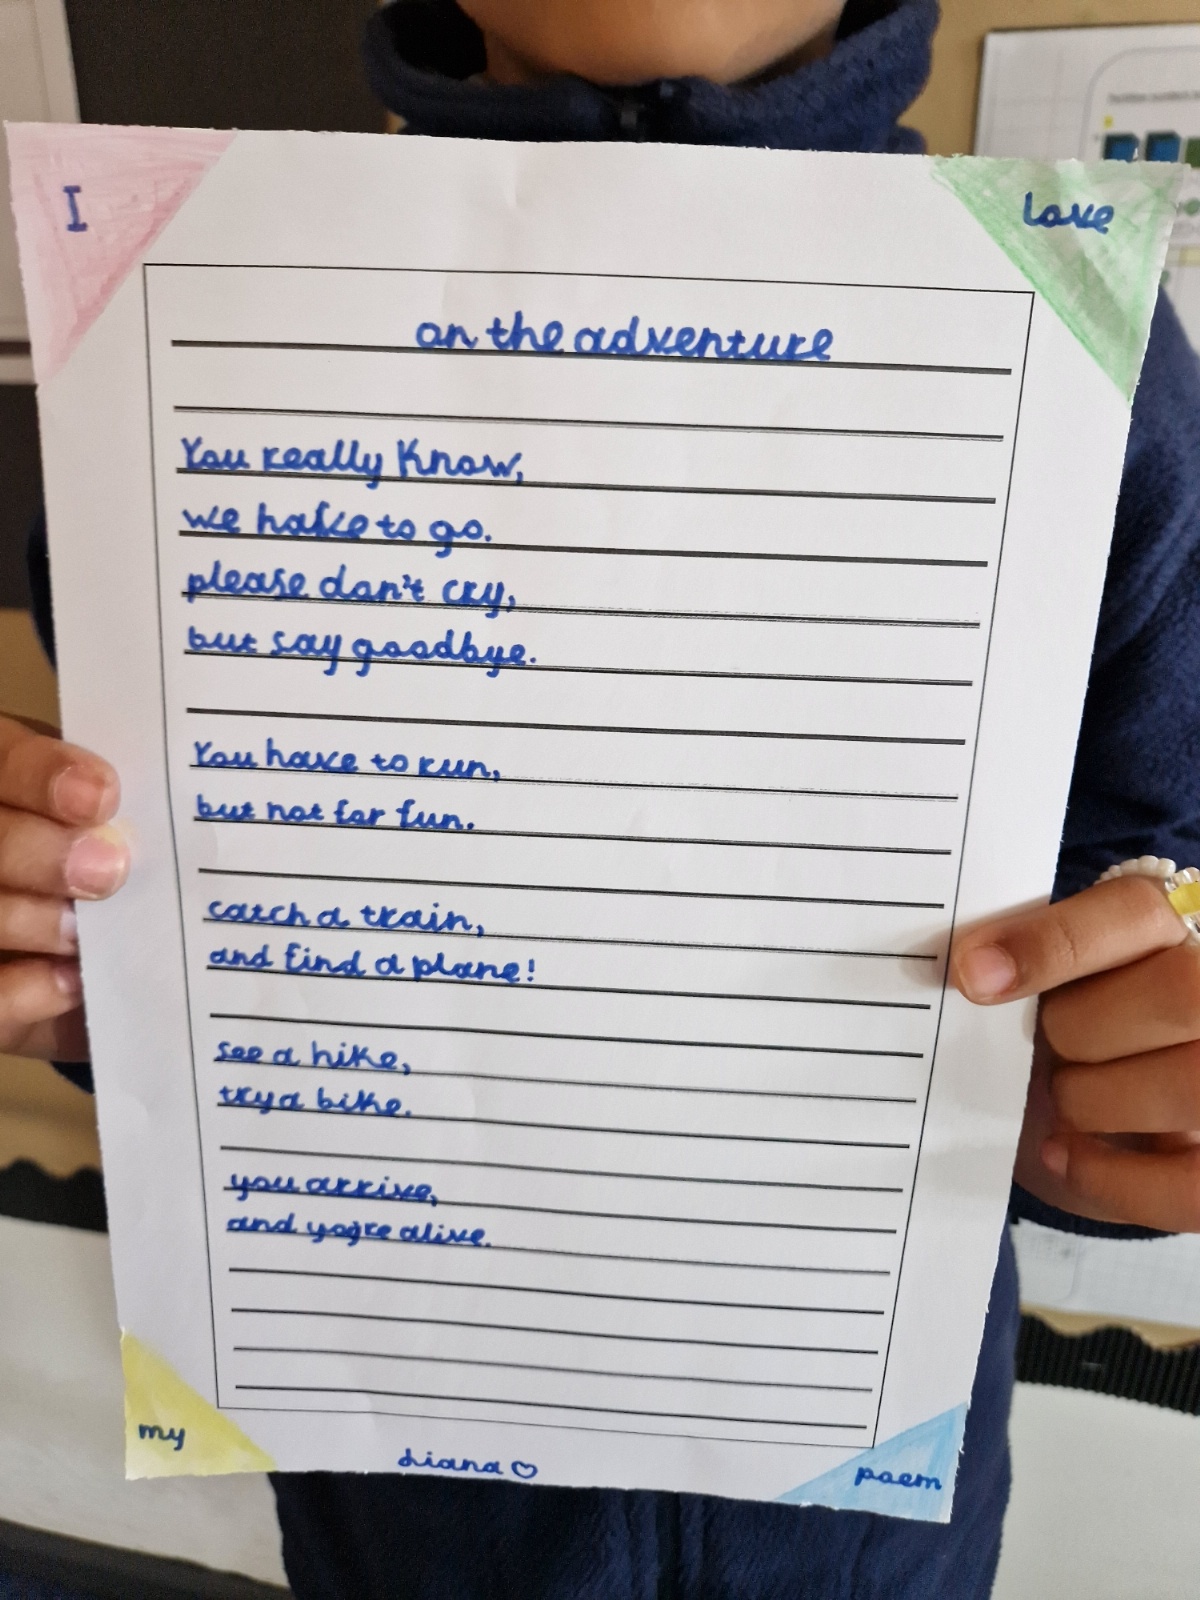 I
love
on the adventure
You really Know,
we have to go.
please don't cry,
but say goodbye.
You have to run,
but not for fun.
catch a train,
and find a plane!
see a hike,
try a bike.
you arrive,
and you're alive.
my
diana ♡
poem